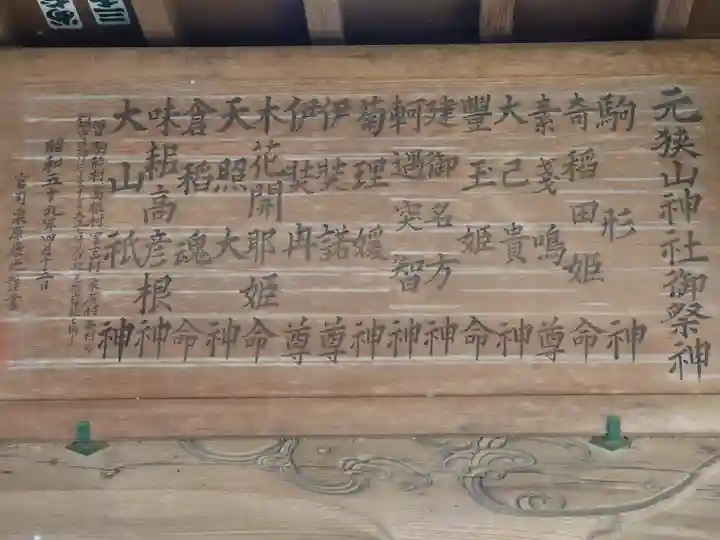 元狭山神社御祭神
駒形神
奇稲田姫命
素戔嗚尊
大己貴神
豐玉姫命
建御名方神
軻遇突智神
菊理媛神
伊奘諾尊
伊奘冉尊
木花開耶姫命
天照大神
倉稲魂命
味耜高彦根神
大山祇神
昭和五十九年四月十三日